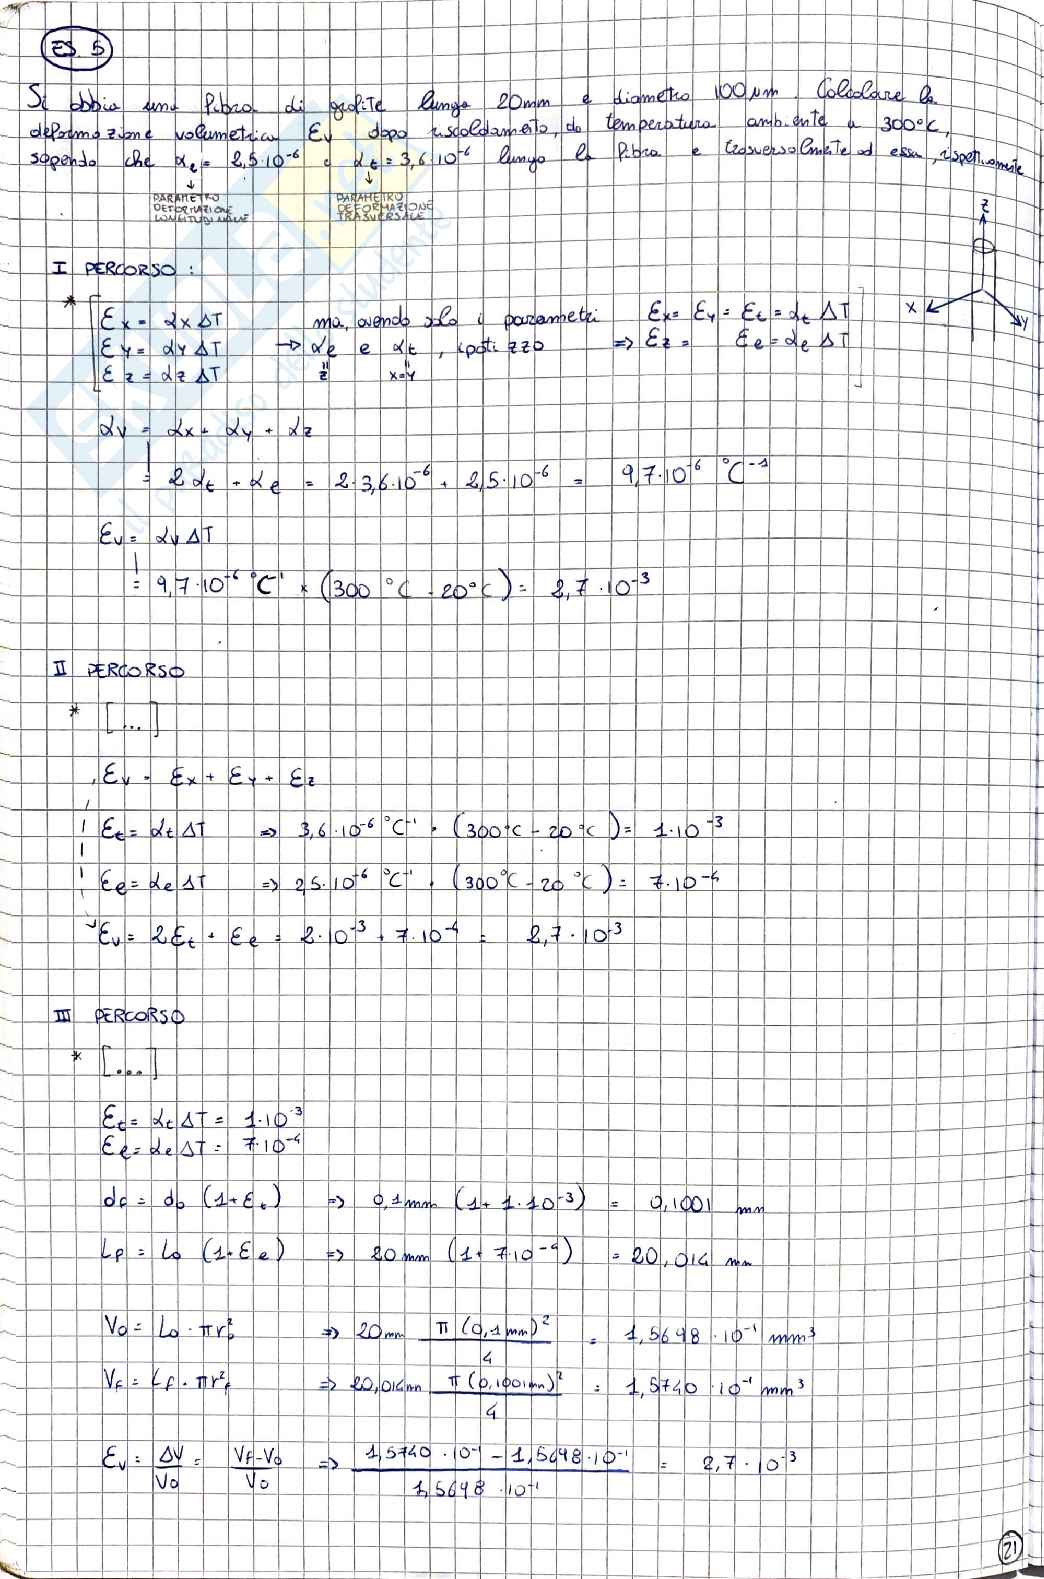 ES. 5
Si abbia una fibra di grafite lunga 20mm e diametro 100 µm. Calcolare la
deformazione volumetrica εv dopo riscaldamento, da temperatura ambiente a 300°C,
sapendo che αe = 2,5·10⁻⁶ e αt = 3,6·10⁻⁶ lungo la fibra e trasversalmente ad essa, rispettivamente
↓ ↓
PARAMETRO PARAMETRO
DEFORMAZIONE DEFORMAZIONE
LONGITUDINALE TRASVERSALE
Z
X
Y
I PERCORSO :
* [ εx = αx ΔT ma, avendo solo i parametri εx = εy = εt = αt ΔT ]
εy = αy ΔT → αe e αt , ipotizzo ⇒ εz = εe = αe ΔT
εz = αz ΔT z x=y
αv = αx + αy + αz
= 2αt + αe = 2·3,6·10⁻⁶ + 2,5·10⁻⁶ = 9,7·10⁻⁶ °C⁻¹
εv = αv ΔT
= 9,7·10⁻⁶ °C⁻¹ × (300 °C - 20°C) = 2,7·10⁻³
II PERCORSO
* [...]
εv = εx + εy + εz
εt = αt ΔT ⇒ 3,6·10⁻⁶ °C⁻¹ · (300°C - 20°C) = 1·10⁻³
εe = αe ΔT ⇒ 2,5·10⁻⁶ °C⁻¹ · (300°C - 20°C) = 7·10⁻⁴
εv = 2εt + εe = 2·10⁻³ + 7·10⁻⁴ = 2,7·10⁻³
III PERCORSO
* [...]
εt = αt ΔT = 1·10⁻³
εe = αe ΔT = 7·10⁻⁴
df = do (1+εt) ⇒ 0,1mm (1+1·10⁻³) = 0,1001 mm
Lf = Lo (1+εe) ⇒ 20mm (1+7·10⁻⁴) = 20,014 mm
Vo = Lo · πro² ⇒ 20mm π(0,1mm)²/4 = 1,5698·10⁻¹ mm³
Vf = Lf · πrf² ⇒ 20,014mm π(0,1001mm)²/4 = 1,5740·10⁻¹ mm³
εv = ΔV/Vo = Vf-Vo/Vo ⇒ 1,5740·10⁻¹ - 1,5698·10⁻¹/1,5698·10⁻¹ = 2,7·10⁻³
21